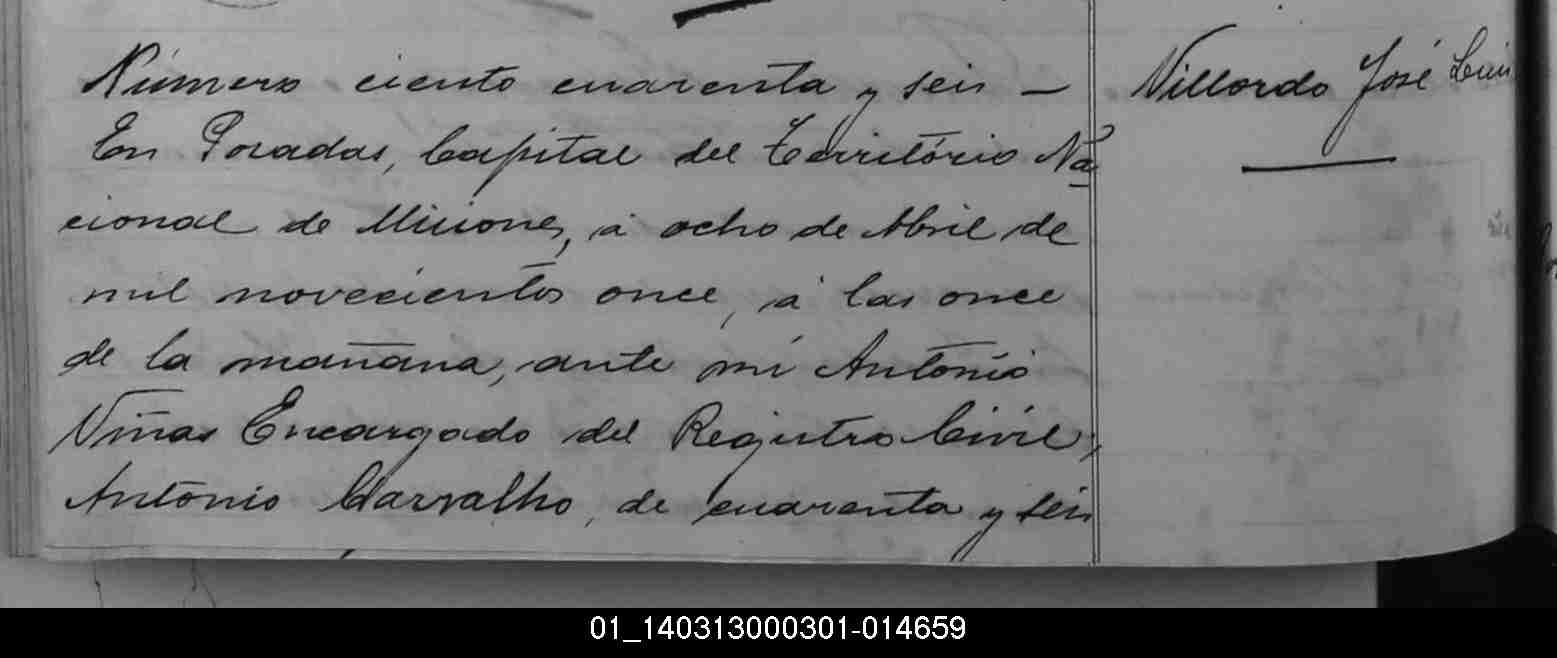 Número ciento cuarenta y seis —
En Posadas, Capital del Território Na
cional de Misiones, á ocho de Abril de
mil novecientos once, á las once
de la mañana, ante mí Antonio
Viñas Encargado del Registro Civil,
Antonio Carvalho, de cuarenta y seis
Villordo José
01_140313000301-014659